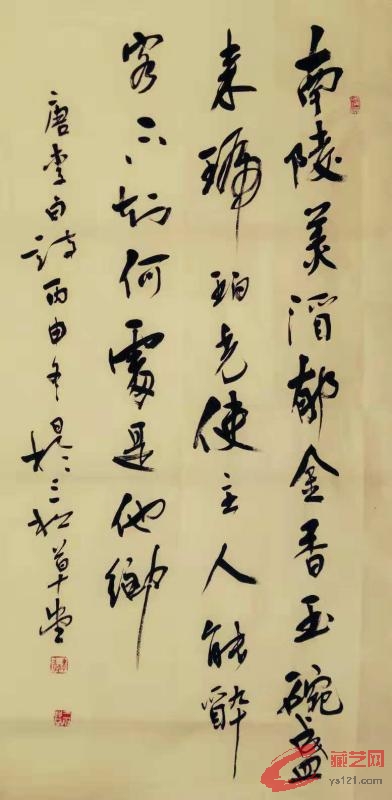 南陵美酒郁金香玉碗盛
来琥珀光使主人能醉
客不知何處是他鄉
唐李白詩丙申年於三松草堂
藏艺网
ys121.com